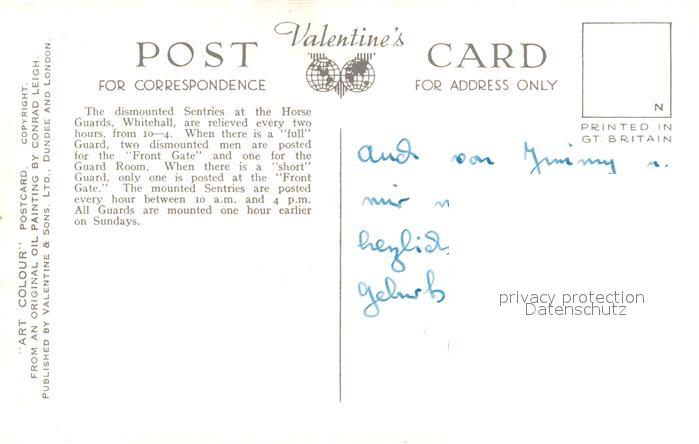 Valentine's
POST CARD
FOR CORRESPONDENCE
FOR ADDRESS ONLY
N
PRINTED IN
GT. BRITAIN
The dismounted Sentries at the Horse
Guards, Whitehall, are relieved every two
hours, from 10—4. When there is a "full"
Guard, two dismounted men are posted
for the "Front Gate" and one for the
Guard Room. When there is a "short"
Guard, only one is posted at the "Front
Gate." The mounted Sentries are posted
every hour between 10 a.m. and 4 p.m.
All Guards are mounted one hour earlier
on Sundays.
"ART COLOUR" POSTCARD. COPYRIGHT.
FROM AN ORIGINAL OIL PAINTING BY CONRAD LEIGH.
PUBLISHED BY VALENTINE & SONS, LTD., DUNDEE AND LONDON.
Auch von Jimmy u.
mir
herzlich
Geburts
privacy protection
Datenschutz